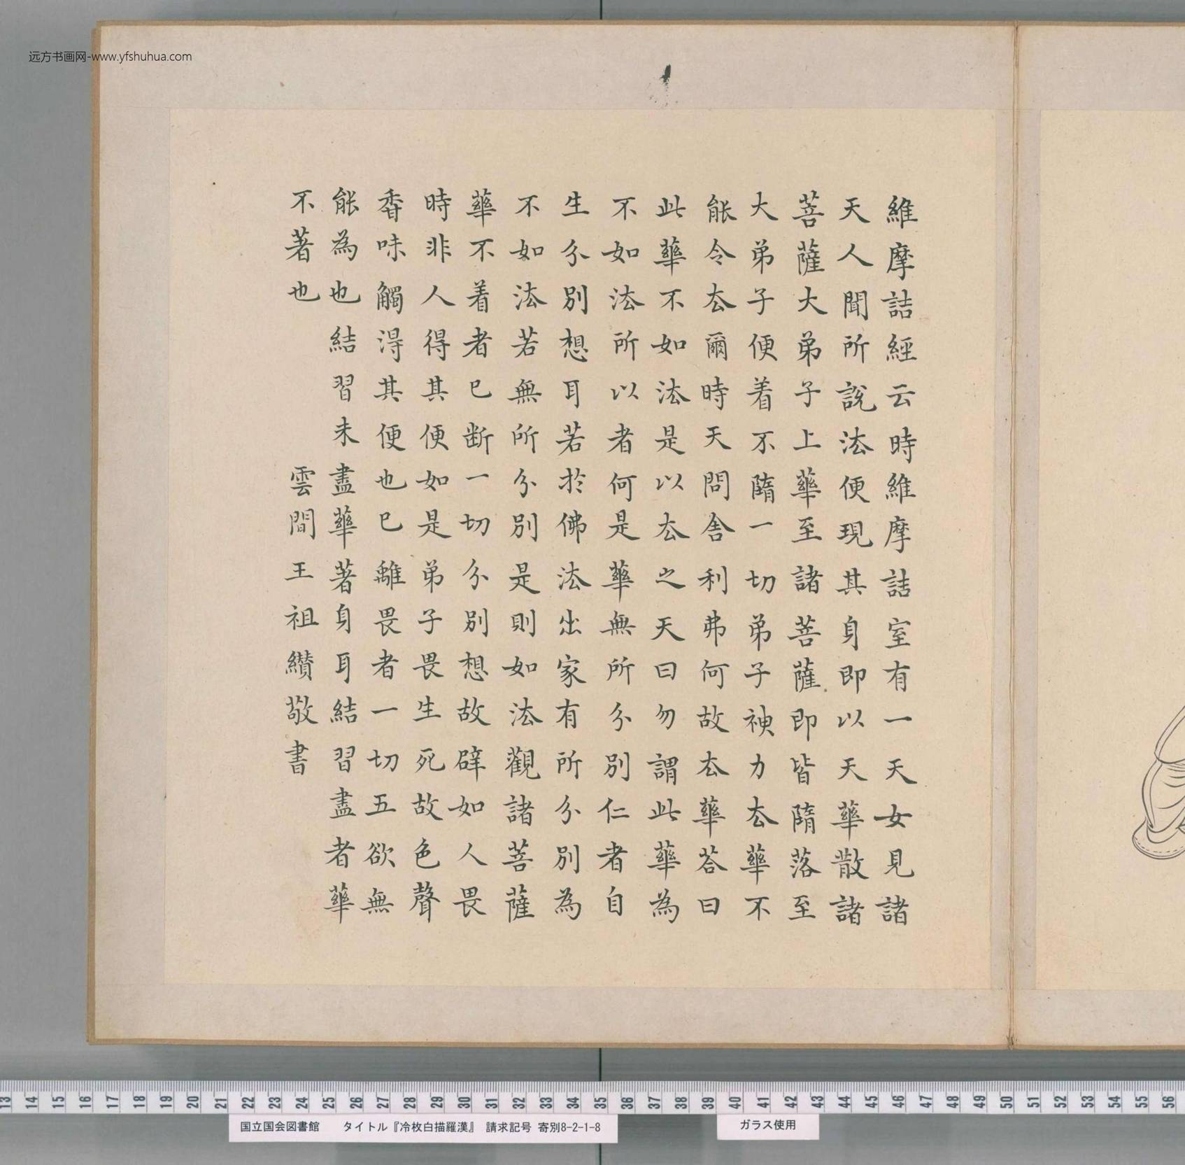 远方书画网-www.yfshuhua.com
維摩詰經云時維摩詰室有一天女見諸
天人聞所說法便現其身即以天華散諸
菩薩大弟子上華至諸菩薩即皆隋落至
大弟子便着不隋一切弟子神力厺華不
能令厺爾時天問舍利弗何故厺華荅曰
此華不如法是以厺之天曰勿謂此華為
不如法所以者何是華無所分別仁者自
生分別想耳若於佛法出家有所分別為
不如法若無所分別是則如法觀諸菩薩
華不着者已断一切分別想故辟如人畏
時非人得其便如是弟子畏生死故色聲
香味觸得其便也已離畏者一切五欲無
能為也結習未盡華著身耳結習盡者華
不著也
雲間王祖纘敬書
国立国会図書館 タイトル『冷枚白描羅漢』 請求記号 寄別8-2-1-8
ガラス使用
13 14 15 16 17 18 19 20 21 22 23 24 25 26 27 28 29 30 31 32 33 34 35 36 37 38 39 40 41 42 43 44 45 46 47 48 49 50 51 52 53 54 55 56